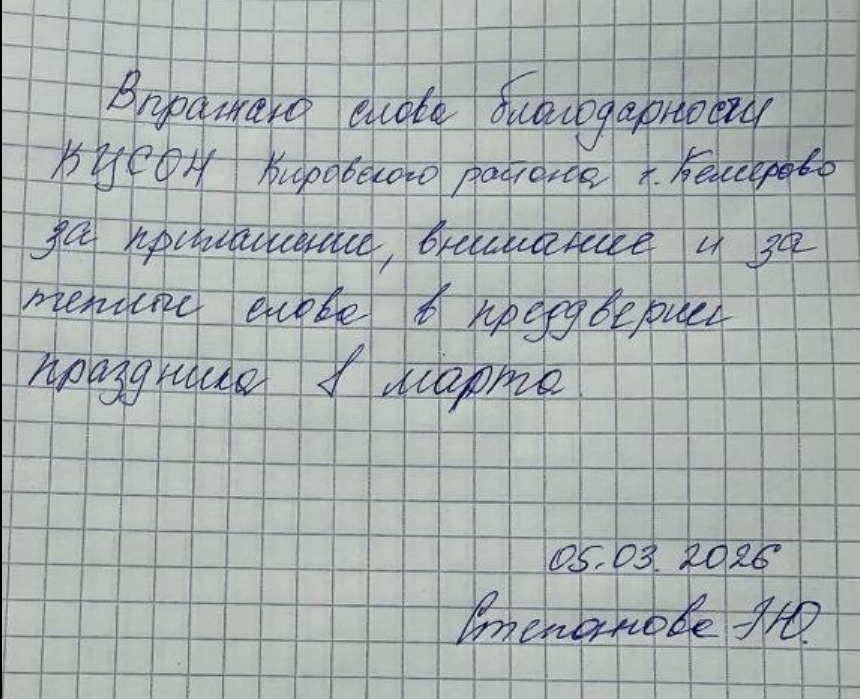 Впражаю слова благодарности
КЦСОН Кировского района г. Кемерово
за приглашение, внимание и за
теплые слова в преддверии
праздника 8 марта.
05.03.2026
Степанова Т.Ю.